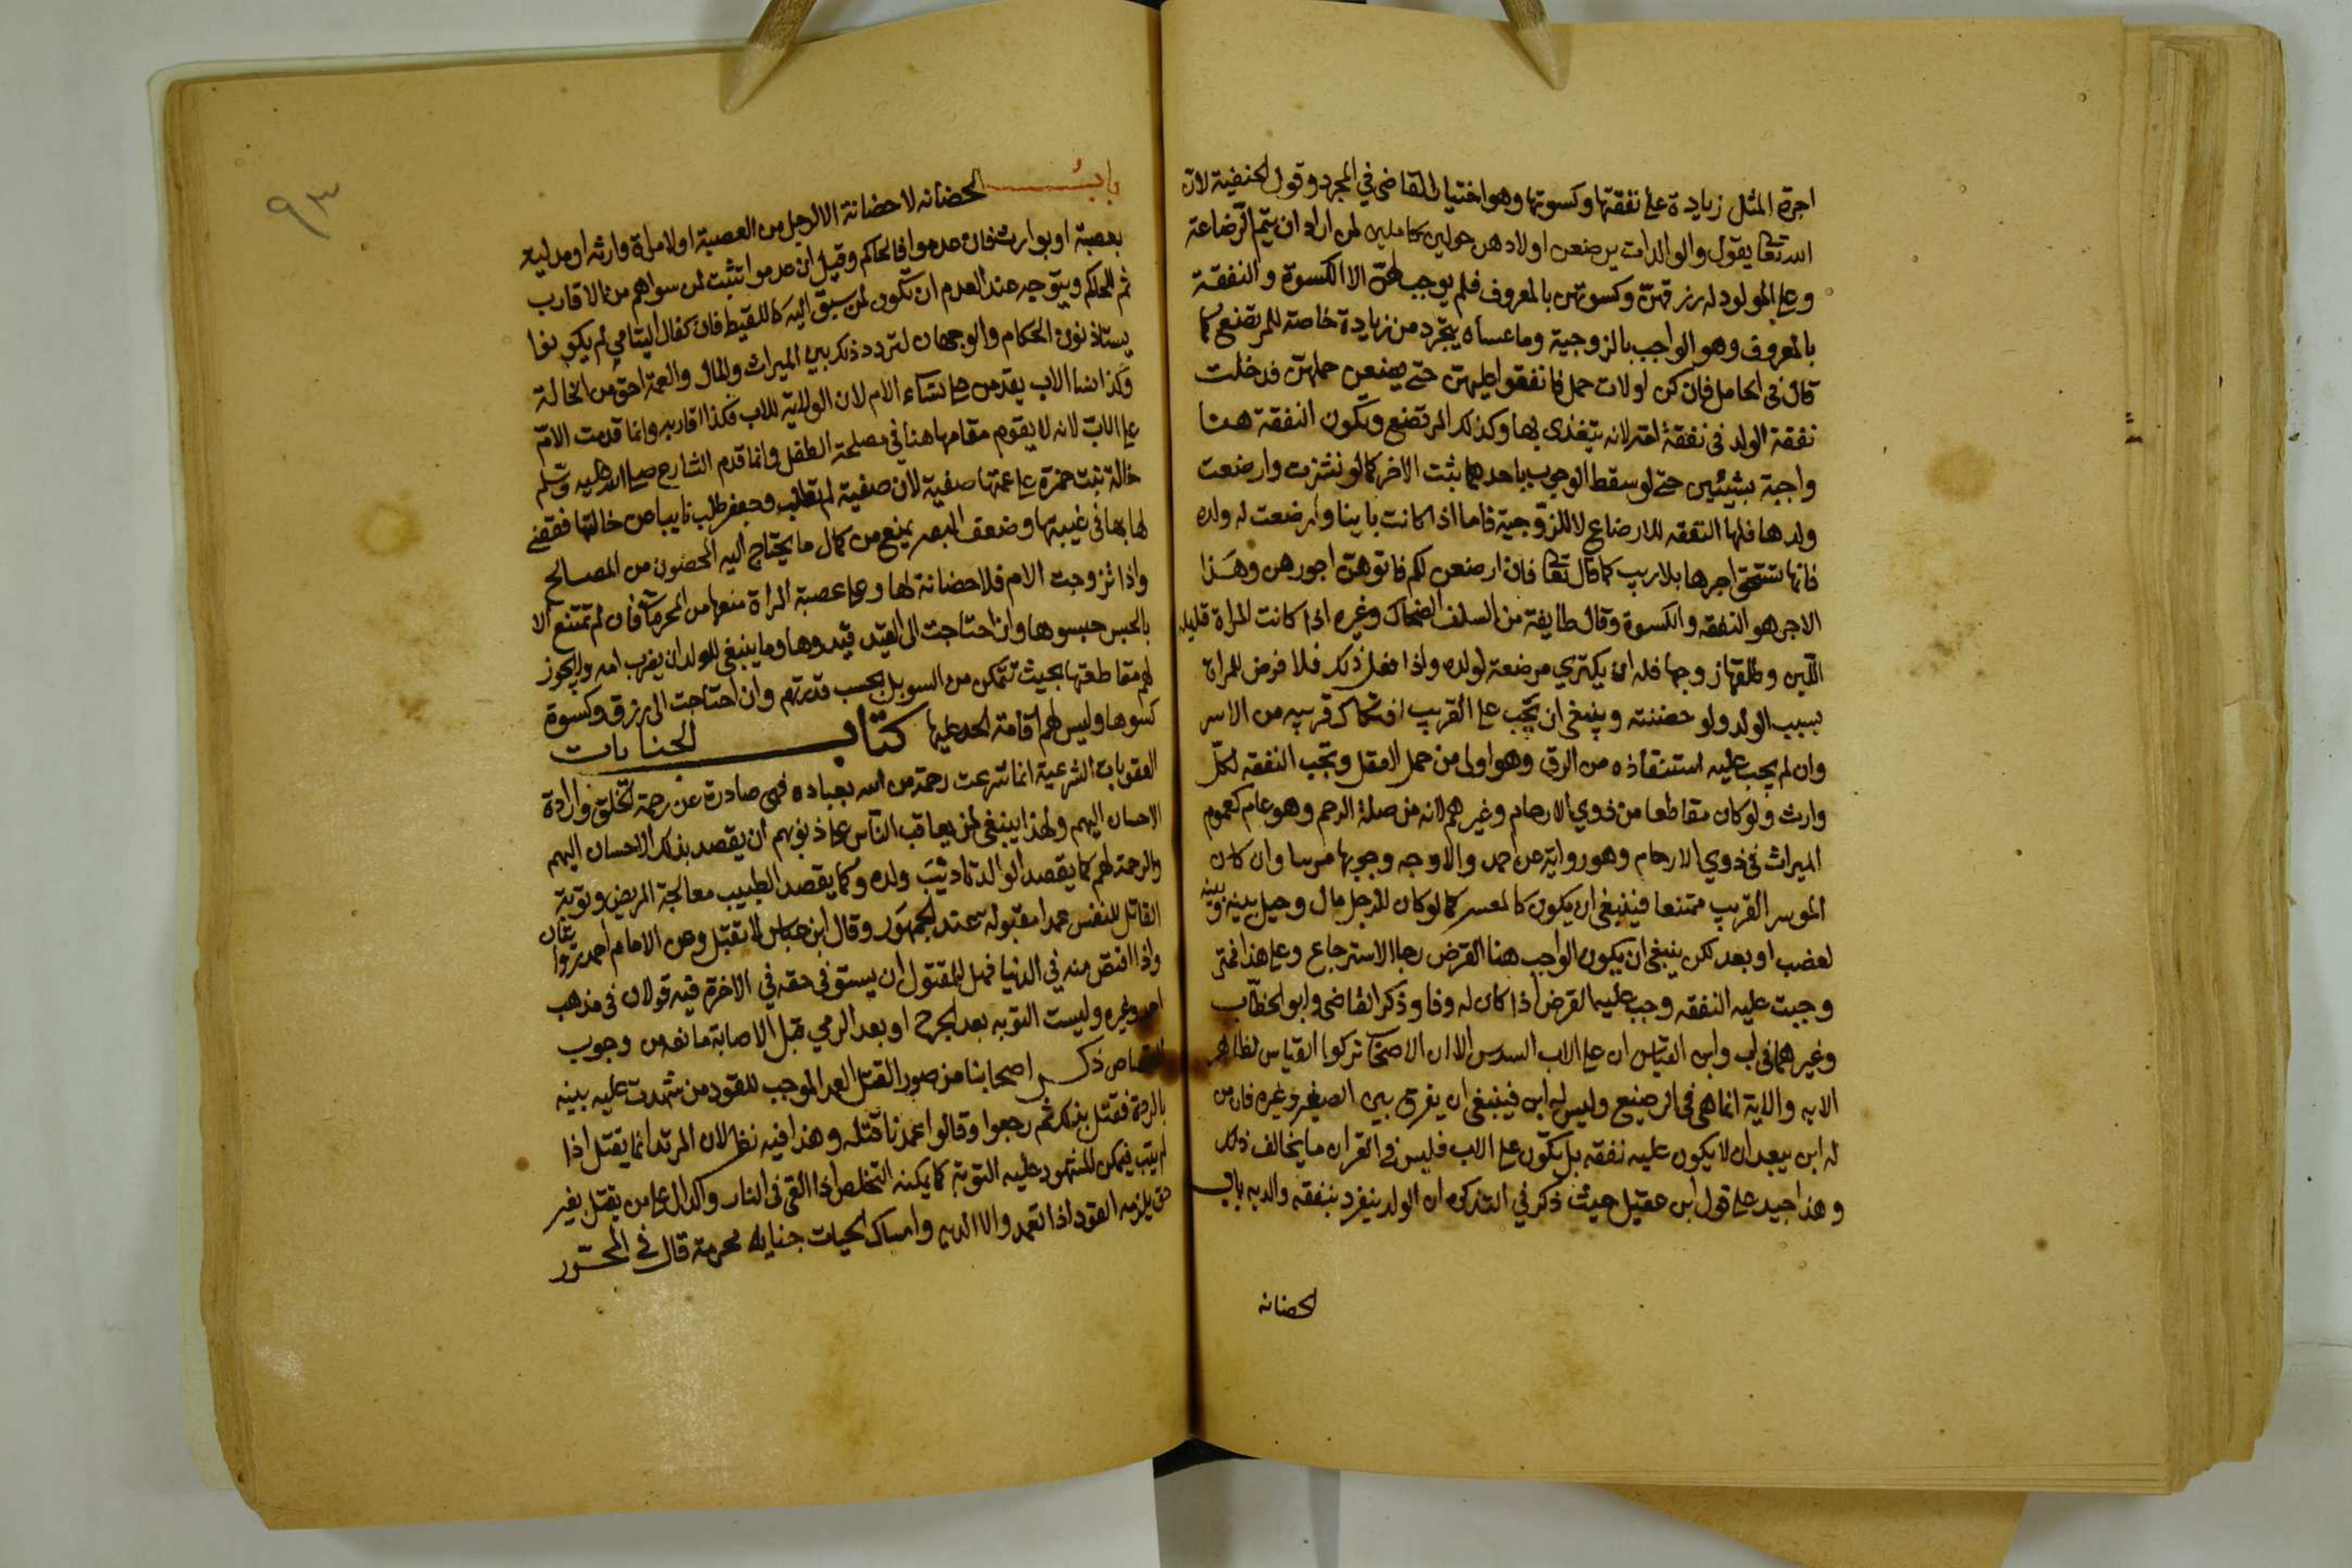 اجرة المثل زيادة على نفقتها وكسوتها وهو اختيار القاضي في المجرد وقول الحنفية لان
الله تعا يقول والوالدات يرضعن اولادهن حولين كاملين لمن اراد ان يتم الرضاعة
وعلى المولود له رزقهن وكسوتهن بالمعروف فلم يوجب لهن الا الكسوة والنفقة
بالمعروف وهو الواجب بالزوجية وما عساه يتجرد من زيادة خاصة للمرتضع كما
قال في الحامل فان كن اولات حمل فانفقوا عليهن حتى يضعن حملهن فدخلت
نفقة الولد في نفقة امه لانه يتغذى بها وكذلك المرتضع وتكون النفقة هنا
واجبة بشيئين حتى لو سقط الوجوب باحدهما ثبت الاخر كما لو نشزت وارضعت
ولدها فلها النفقه للارضاع لا للزوجية فاما اذا كانت باينا وارضعت له ولده
فانها تستحق اجرها بلا ريب كما قال تعا فان ارضعن لكم فاتوهن اجورهن وهذا
الاجر هو النفقه والكسوة وقال طايفة من السلف الضحاك وغيره اذا كانت المراة قليله
اللبن وطلقها زوجها فله ان يكتري مرضعة لولده واذا فعل ذلك فلا فرض للمراة
بسبب الولد ولو حضنته وينبغي ان تجب على القريب افتكاك قريبه من الاسر
وان لم يجب عليه استنقاذه من الرق وهو اولى من حمل العقل وتجب النفقه لكل
وارث ولو كان مقاطعا من ذوي الارحام وغيرهم لانه من صلة الرحم وهو عام كعموم
الميراث في ذوي الارحام وهو رواية عن احمد والاوجه وجوبها مرسا وان كان
الموسر القريب ممتنعا فينبغي ان يكون كالمعسر كما لو كان للرجل مال وحيل بينه وبينه
لغضب او بعد لكن ينبغي ان يكون الواجب هنا القرض رجا الاسترجاع وعلى هذا فمتى
وجبت عليه النفقه وجب عليه القرض اذا كان له وفا وذكر القاضي وابو الخطاب
وغيرهما في اب وابن القياس ان على الاب السدس الا ان الاصحاب تركوا القياس لظاهر
الايه والاية انما هي في الرضيع وليس له ابن فينبغي ان يفرق بين الصغير وغيره فان من
له ابن يبعد ان لا يكون عليه نفقه بل تكون على الاب فليس في القران ما يخالف ذلك
وهذا جيد على قول ابن عقيل حيث ذكر في التذكره ان الولد ينفرد بنفقه والديه باب
الحضانه
٩٣
باب الحضانه لا حضانة الا لرجل من العصبة او لامراة وارثه او مدليه
بعصبة او بوارث فان عدموا فالحاكم وقيل ان عدموا تثبت لمن سواهم من الاقارب
ثم للحاكم ويتوجه عند العدم ان تكون لمن سبق اليه كاللقيط فان كفال اليتامي لم يكونوا
يستاذنون الحكام والوجهان لتردد ذلك بين الميراث والمال والعمة احق من الخالة
وكذا نسا الاب يقدمن على نساء الام لان الولاية للاب فكذا اقاربه وانما قدمت الام
على الاب لانه لا يقوم مقامها هنا في مصلحة الطفل وانما قدم الشارع صلى الله عليه وسلم
خالة بنت حمزة على عمتها صفية لان صفية لم تطلب وجعفر طلب نايبا عن خالتها فقضى
لها بها في غيبتها وضعف البصر يمنع من كمال ما يحتاج اليه المحضون من المصالح
واذا تزوجت الام فلا حضانة لها وعلى عصبة المراة منعها من المحرمات فان لم تمتنع الا
بالحبس حبسوها وان احتاجت الى القيد قيدوها وما ينبغي للولد ان يضرب امه ولا يجوز
لهم مقاطعتها بحيث تتمكن من السو بل بحسب قدرتهم وان احتاجت الى رزق وكسوة
كسوها وليس لهم اقامة الحد عليها كتاب الجنايات
العقوبات الشرعية انما شرعت رحمة من الله بعباده فهي صادرة عن رحمة الخلق وارادة
الاحسان اليهم ولهذا ينبغي لمن يعاقب الناس على ذنوبهم ان يقصد بذلك الاحسان اليهم
والرحمة لهم كما يقصد الوالد تاديب ولده وكما يقصد الطبيب معالجة المريض وتوبة
القاتل للنفس عمدا مقبوله عند الجمهور وقال ابن عباس لا تقبل وعن الامام احمد روايتان
واذا اقتص منه في الدنيا فهل للمقتول ان يستوفى حقه في الاخرة فيه قولان في مذهب
احمد وغيره وليست التوبه بعد الجرح او بعد الرمي قبل الاصابة مانعه من وجوب
القصاص ذكر اصحابنا من صور القتل العمد الموجب للقود من شهدت عليه بينه
بالردة فقتل بذلك ثم رجعوا وقالوا عمدنا قتله وهذا فيه نظر لان المرتد انما يقتل اذا
لم يتب فيمكن للمشهود عليه التوبة كما يمكنه التخلص اذا القى في النار والدال على من يقتل بغير
حق يلزمه القود اذا تعمد والا الديه وامساك الحيات جنايه محرمة قال في المحرر